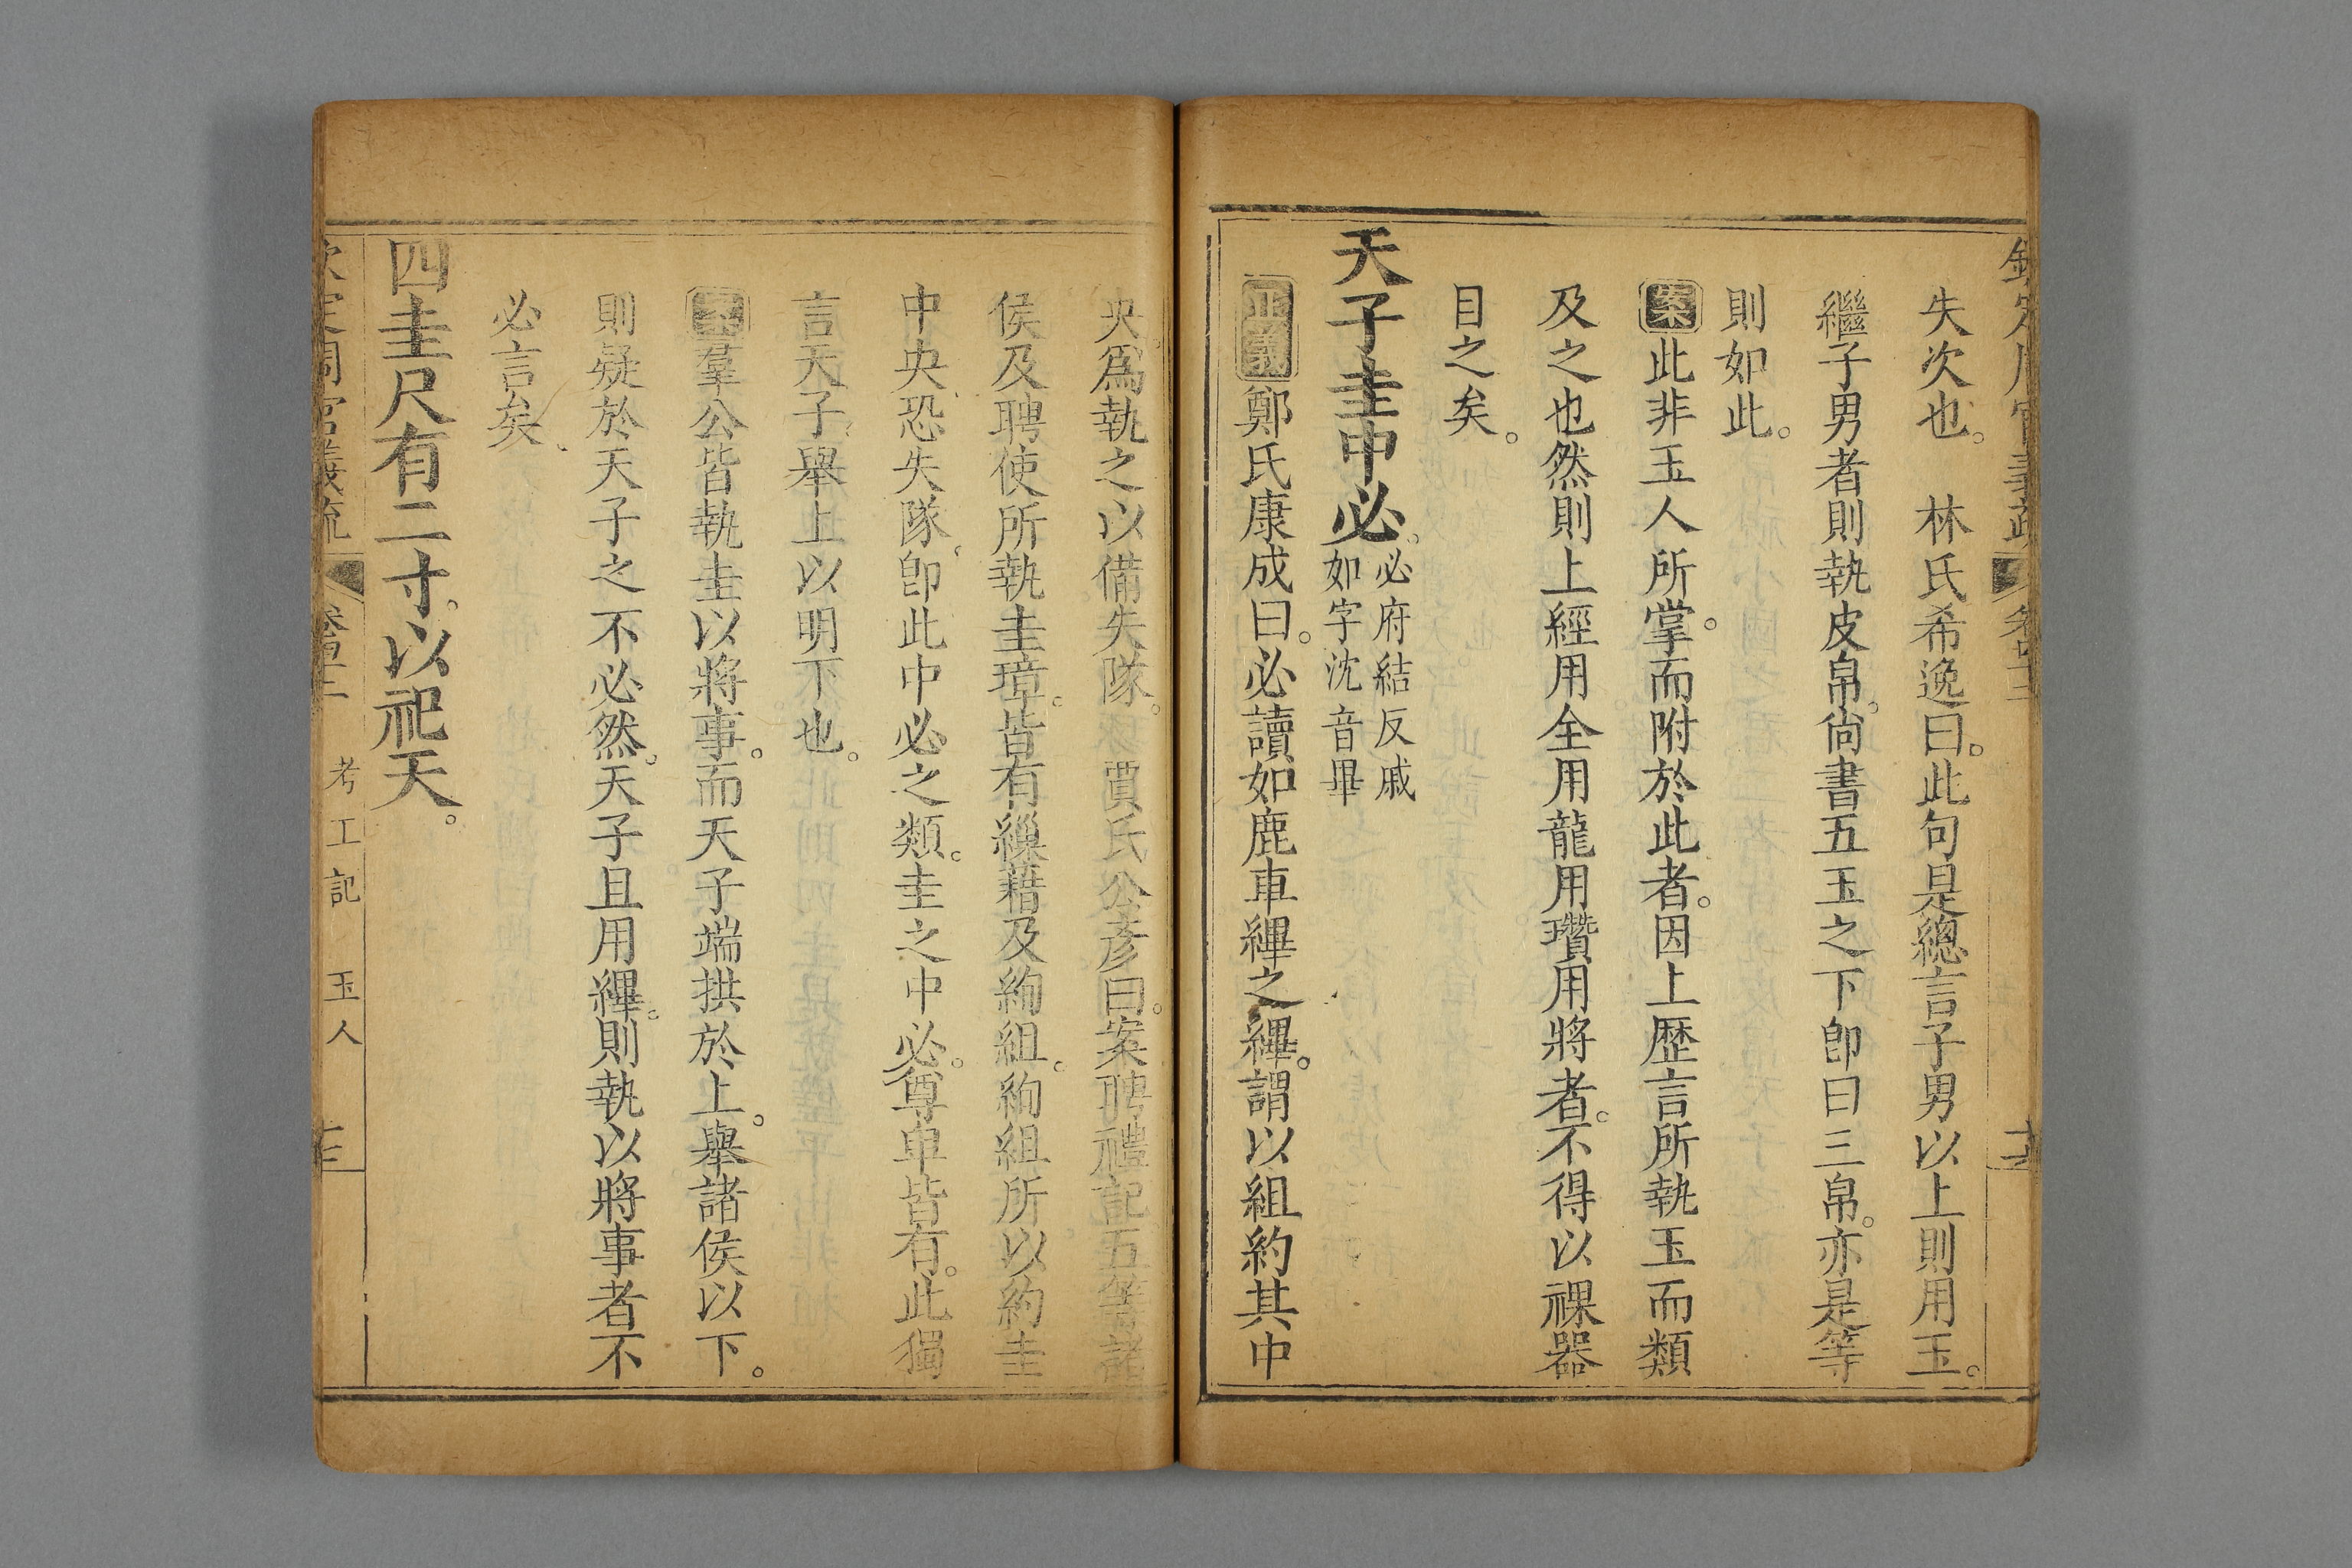 失次也。　林氏希逸曰。此句是總言子男以上則用玉。
繼子男者則執皮帛。尙書五玉之下卽曰三帛。亦是等
則如此。
案此非玉人所掌。而附於此者。因上歷言所執玉而類
及之也然則上經用全用龍用瓚用將者。不得以祼器
目之矣。
天子圭中必。必府結反戚
如字沈音畢
正義鄭氏康成曰。必讀如鹿車縪之縪。謂以組約其中
央爲執之以備失隊。　賈氏公彥曰。案聘禮記五等諸
侯及聘使所執圭璋。皆有繅藉及絢組。絢組所以約圭
中央恐失隊。卽此中必之類。圭之中必。尊卑皆有。此獨
言天子舉上以明下也。
案羣公皆執圭以將事。而天子端拱於上。舉諸侯以下。
則疑於天子之不必然。天子且用縪。則執以將事者不
必言矣。
四圭尺有二寸。以祀天。
欽定周官義疏　考工記　玉人